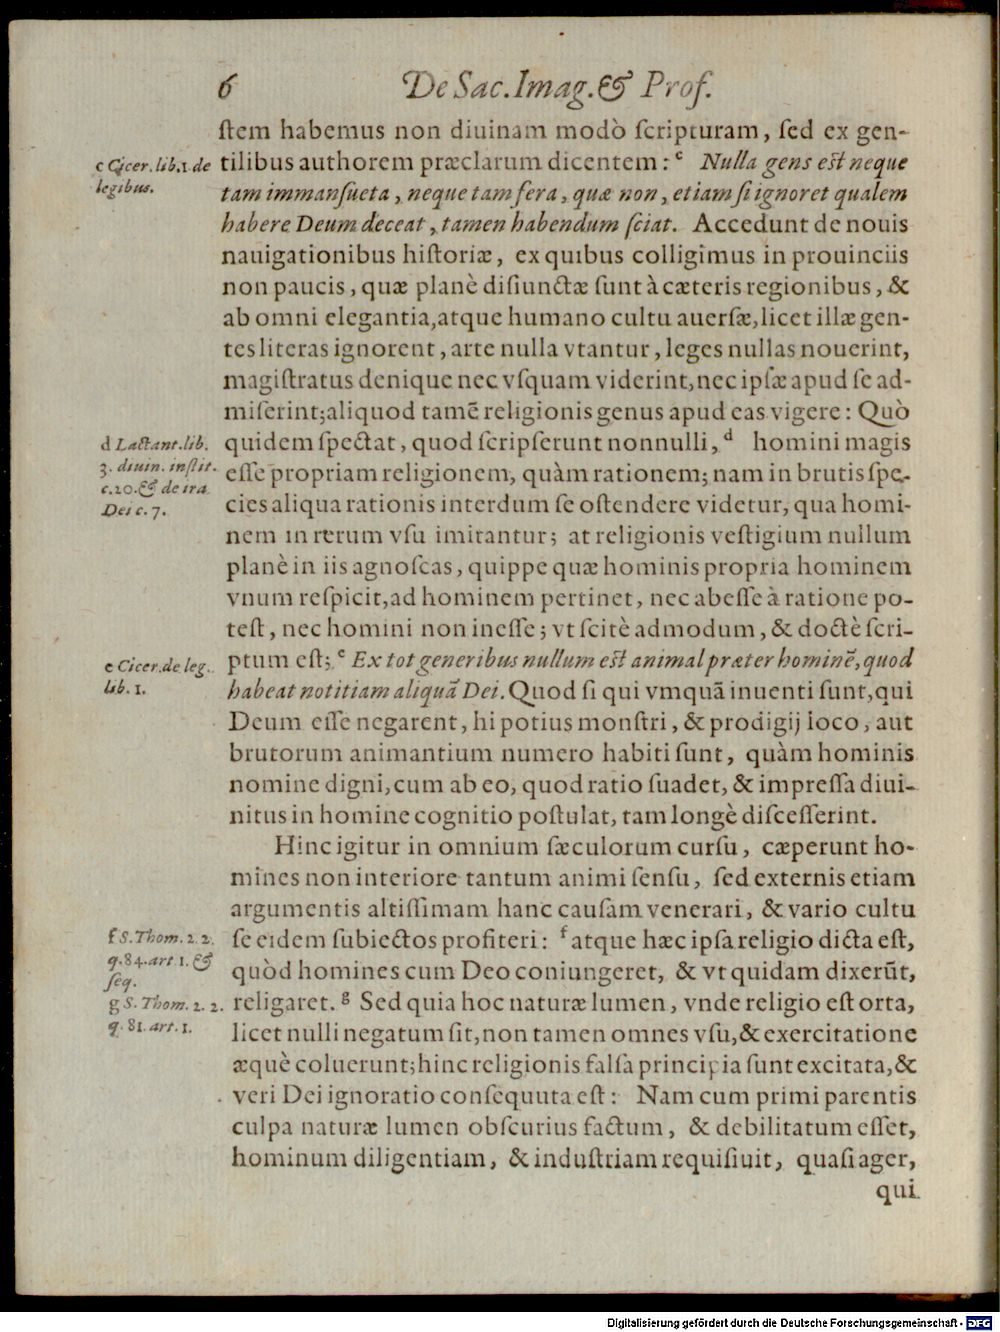 6 De Sac. Imag. & Prof.
stem habemus non diuinam modò scripturam, sed ex gen-
tilibus authorem præclarum dicentem: c Nulla gens est neque
tam immansueta, neque tam fera, quæ non, etiam si ignoret qualem
habere Deum deceat, tamen habendum sciat. Accedunt de nouis
nauigationibus historiæ, ex quibus colligimus in prouinciis
non paucis, quæ planè disiunctæ sunt à cæteris regionibus, &
ab omni elegantia, atque humano cultu auersæ, licet illæ gen-
tes literas ignorent, arte nulla vtantur, leges nullas nouerint,
magistratus denique nec vsquam viderint, nec ipsæ apud se ad-
miserint; aliquod tamē religionis genus apud eas vigere: Quò
quidem spectat, quod scripserunt nonnulli, d homini magis
esse propriam religionem, quàm rationem; nam in brutis spe-
cies aliqua rationis interdum se ostendere videtur, qua homi-
nem in rerum vsu imitantur; at religionis vestigium nullum
planè in iis agnoscas, quippe quæ hominis propria hominem
vnum respicit, ad hominem pertinet, nec abesse à ratione po-
test, nec homini non inesse; vt scitè admodum, & doctè scri-
ptum est; e Ex tot generibus nullum est animal præter hominē, quod
habeat notitiam aliquā Dei. Quod si qui vmquā inuenti sunt, qui
Deum esse negarent, hi potius monstri, & prodigij loco, aut
brutorum animantium numero habiti sunt, quàm hominis
nomine digni, cum ab eo, quod ratio suadet, & impressa diui-
nitus in homine cognitio postulat, tam longè discesserint.
Hinc igitur in omnium sæculorum cursu, cæperunt ho-
mines non interiore tantum animi sensu, sed externis etiam
argumentis altissimam hanc causam venerari, & vario cultu
se eidem subiectos profiteri: f atque hæc ipsa religio dicta est,
quòd homines cum Deo coniungeret, & vt quidam dixerūt,
religaret. g Sed quia hoc naturæ lumen, vnde religio est orta,
licet nulli negatum sit, non tamen omnes vsu, & exercitatione
æquè coluerunt; hinc religionis falsa principia sunt excitata, &
veri Dei ignoratio consequuta est: Nam cum primi parentis
culpa naturæ lumen obscurius factum, & debilitatum esset,
hominum diligentiam, & industriam requisiuit, quasi ager,
qui
c Cicer. lib. 1 de
legibus.
d Lactant. lib.
3. diuin. instit.
c. 20. & de ira
Dei c. 7.
e Cicer. de leg.
lib. 1.
f S. Thom. 2. 2.
q. 84. art 1. &
seq.
g S. Thom. 2. 2.
q. 81. art. 1.
Digitalisierung gefördert durch die Deutsche Forschungsgemeinschaft - DFG